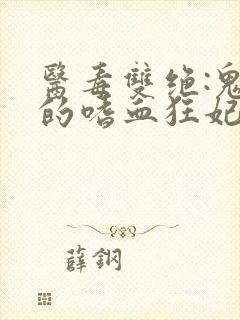 醫毒雙绝:鬼
的嗜血狂妃
薛鋼